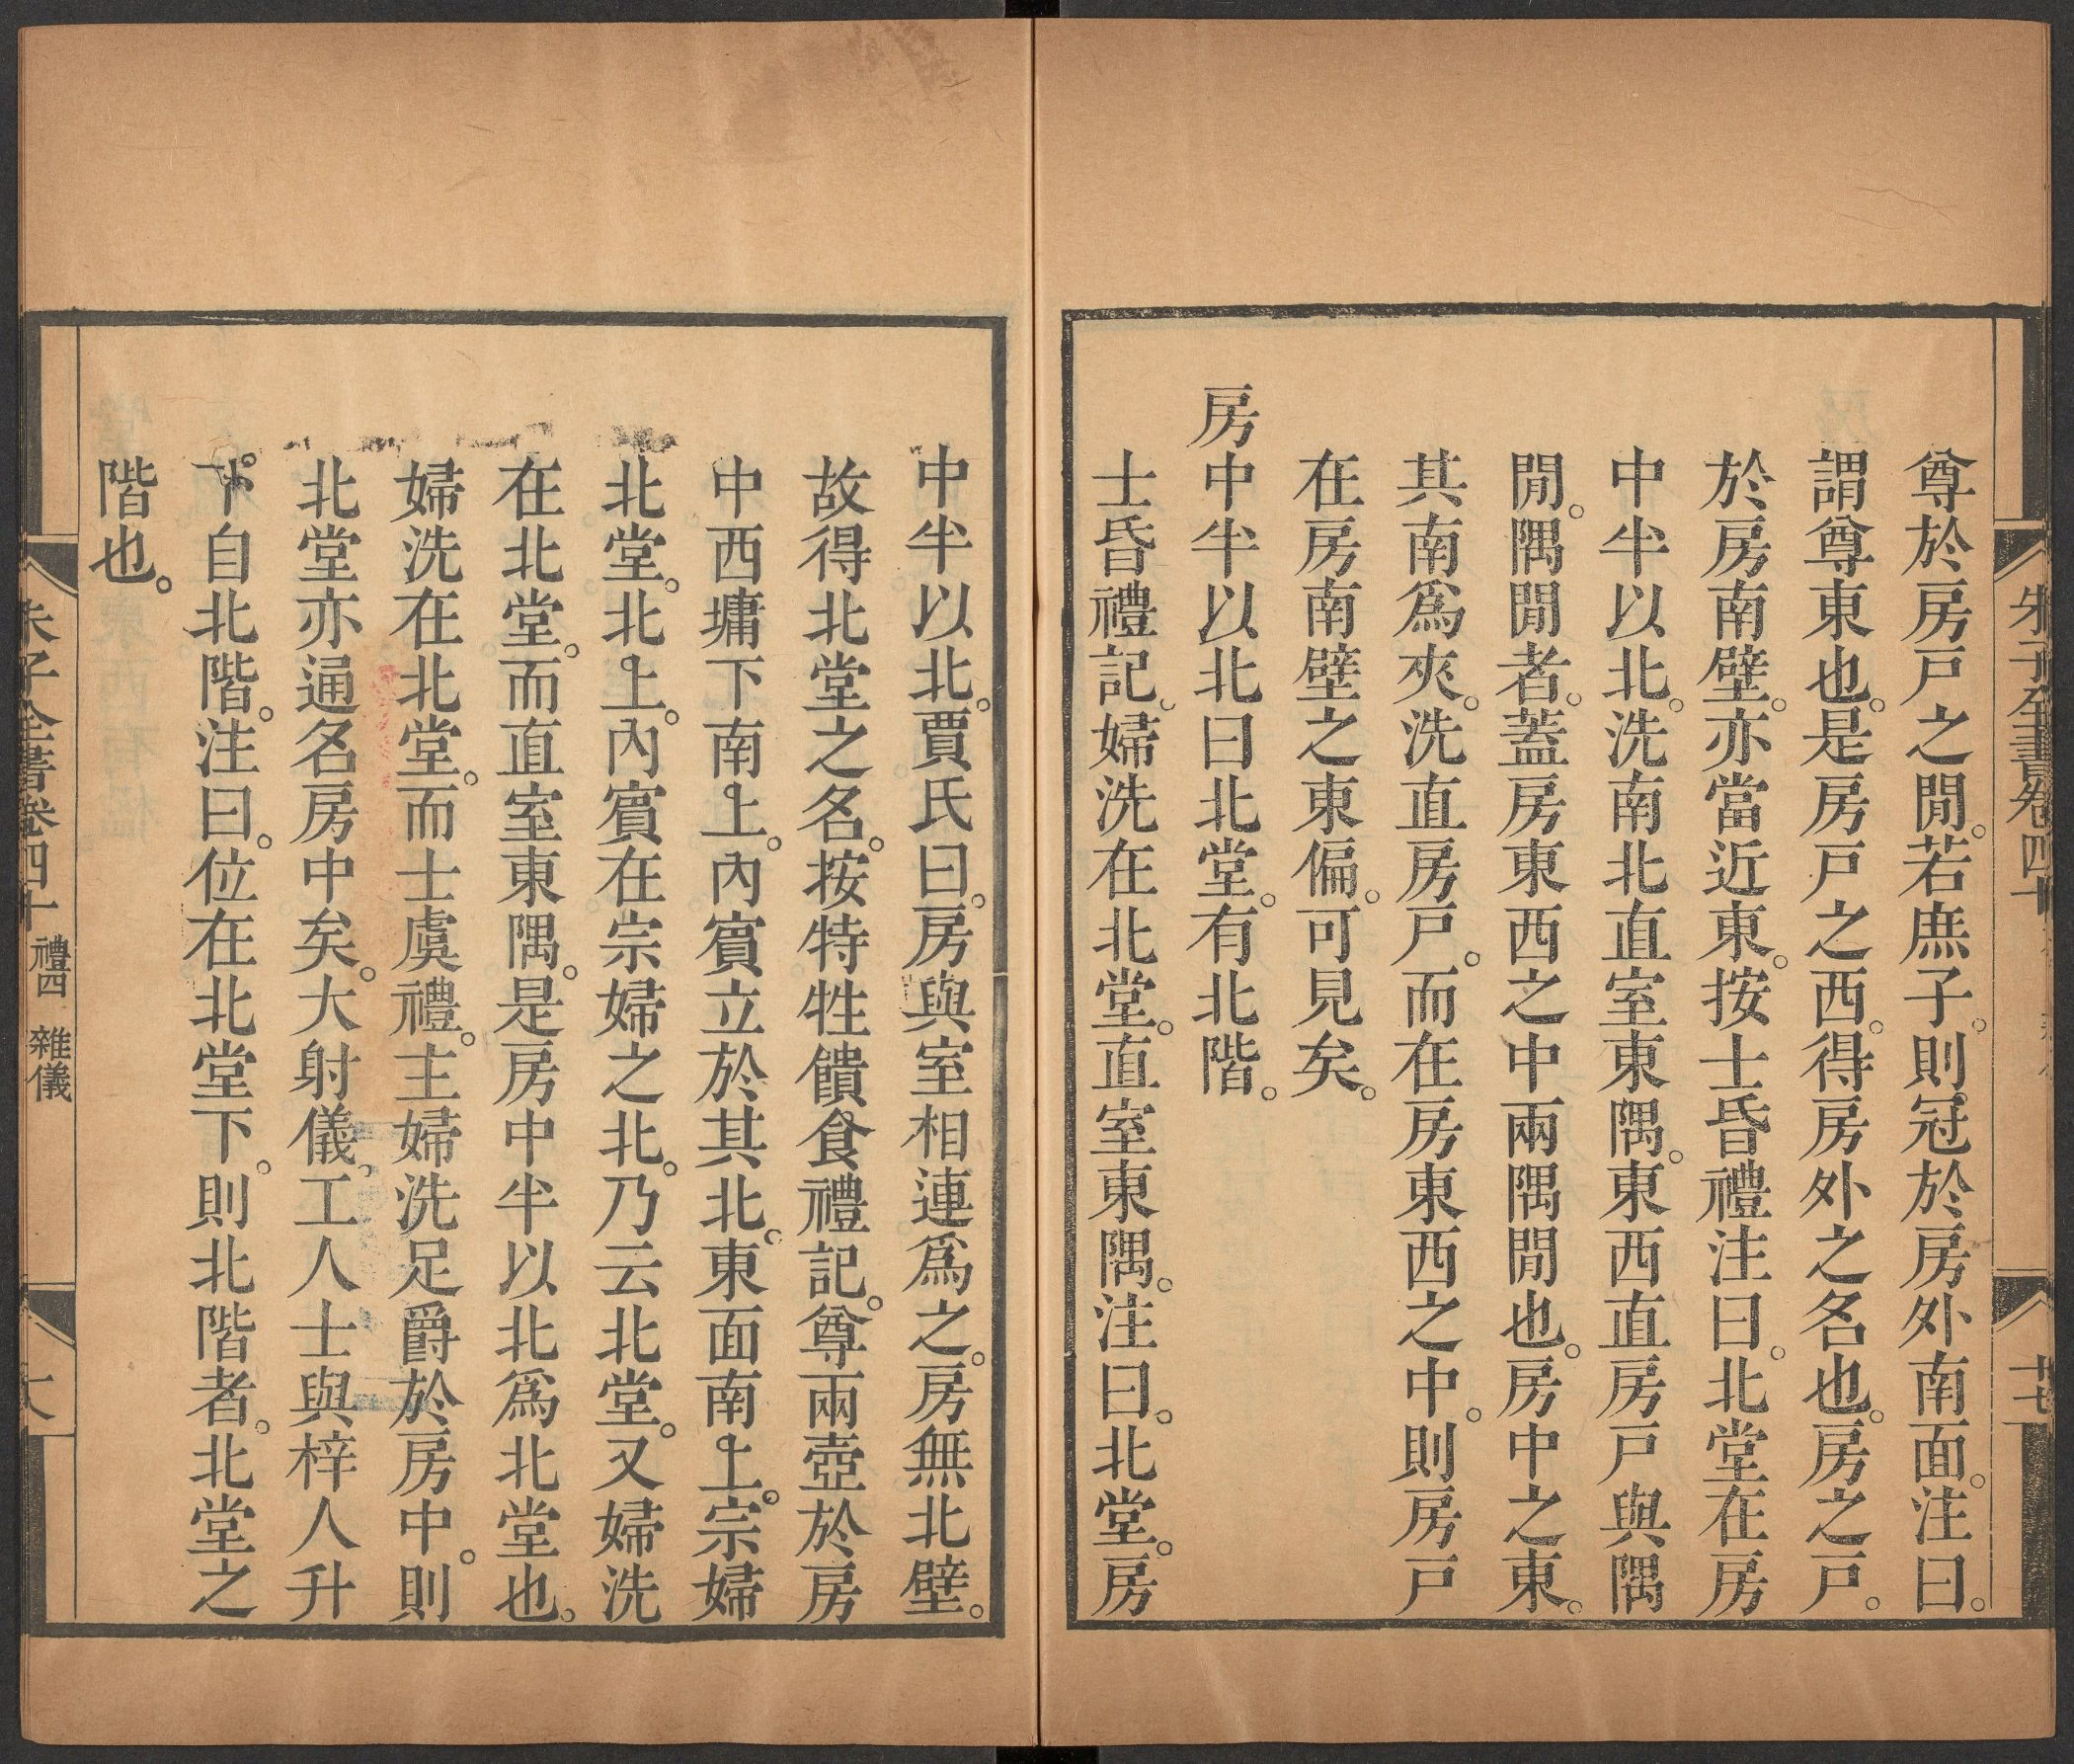 朱子全書卷四十
尊於房戸之閒。若庶子。則冠於房外南面。注曰。
謂尊東也。是房戸之西。得房外之名也。房之戸。
於房南壁。亦當近東。按士昏禮注曰。北堂在房
中半以北。洗南北直室東隅。東西直房戸與隅
閒。隅閒者。蓋房東西之中兩隅閒也。房中之東。
其南爲夾。洗直房戸。而在房東西之中。則房戸
在房南壁之東偏。可見矣。
房中半以北曰北堂。有北階。
士昏禮記。婦洗在北堂。直室東隅。注曰。北堂。房
中半以北。賈氏曰。房與室相連爲之。房無北壁。
故得北堂之名。按特牲饋食禮記。尊兩壺於房
中西墉下南上。內賔立於其北。東面南上。宗婦
北堂。北上。內賔在宗婦之北。乃云北堂。又婦洗
在北堂。而直室東隅。是房中半以北爲北堂也。
婦洗在北堂。而士虞禮。主婦洗足爵於房中。則
北堂亦通名房中矣。大射儀。工人士與梓人升
下自北階。注曰。位在北堂下。則北階者。北堂之
階也。
朱子全書卷四十 禮四 雜儀